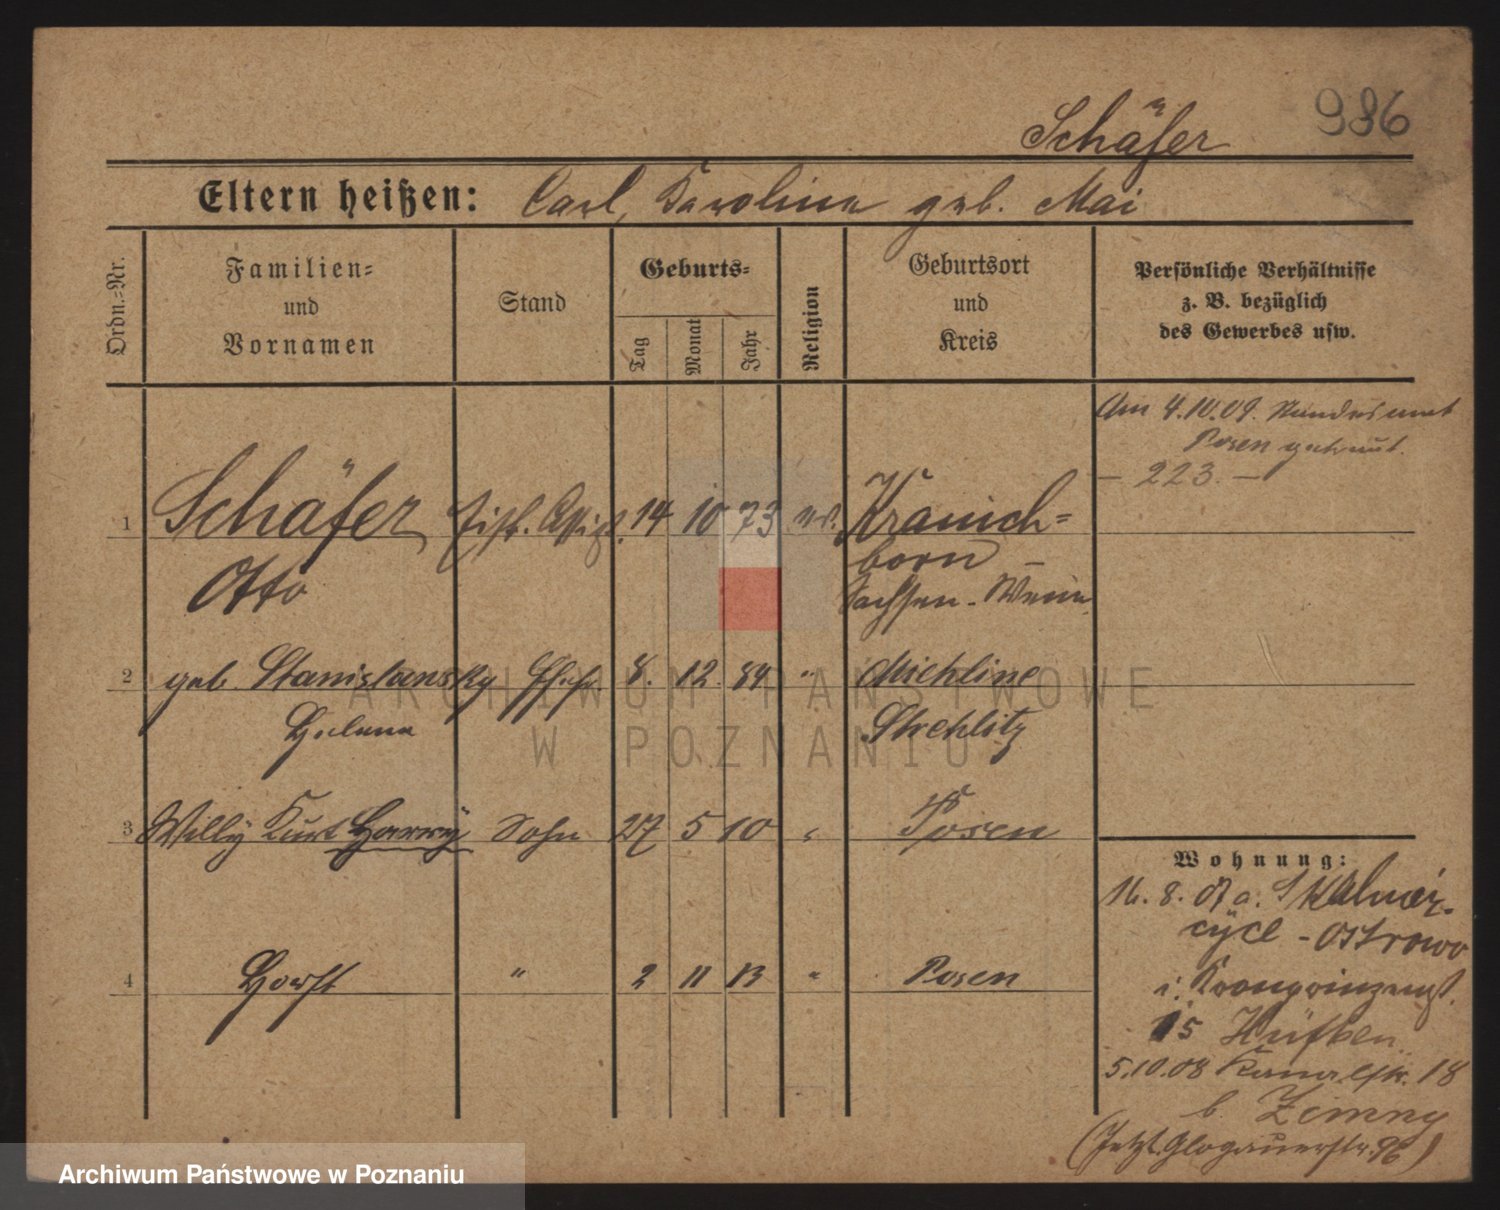 986
Schäfer
Eltern heißen: Carl, Karoline geb. Mai
Ordn.=Nr.
Familien=
und
Vornamen
Stand
Geburts=
Tag
Monat
Jahr
Religion
Geburtsort
und
Kreis
Persönliche Verhältnisse
z. B. bezüglich
des Gewerbes usw.
Am 4.10.09. Standesamt
Posen getraut.
– 223. –
1 Schäfer 14 10 73 ev. Kranich=
born
Otto
Sachsen-
2 geb. Stanislansky Ehefr. 8. 12. 84 " Michline
Helene Strehlitz
3 Willy Kurt Harry Sohn 27 5 10 " Posen
4 Horst " 2 11 13 " Posen
Wohnung:
16. 8. 07 a.
-Ostrowo
i. Kronprinzenst.
15
5.10.08 Kanalstr. 18
b. Zimny
(Jetzt. Glogauerstr. 96)
ARCHIWUM PAŃSTWOWE
W POZNANIU
Archiwum Państwowe w Poznaniu